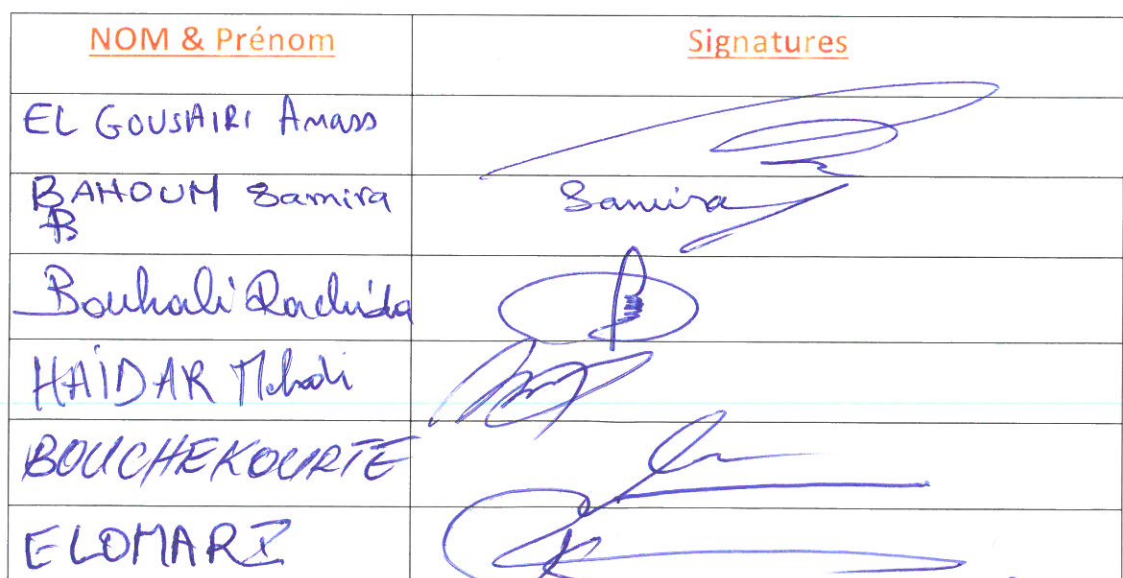 NOM & Prénom Signatures
EL GOUSAIRI Anass
BAHOUM Samira Samira
B
Bouhali Rachida
HAÏDAR Mehdi
BOUCHEKOURTE
ELOMARI